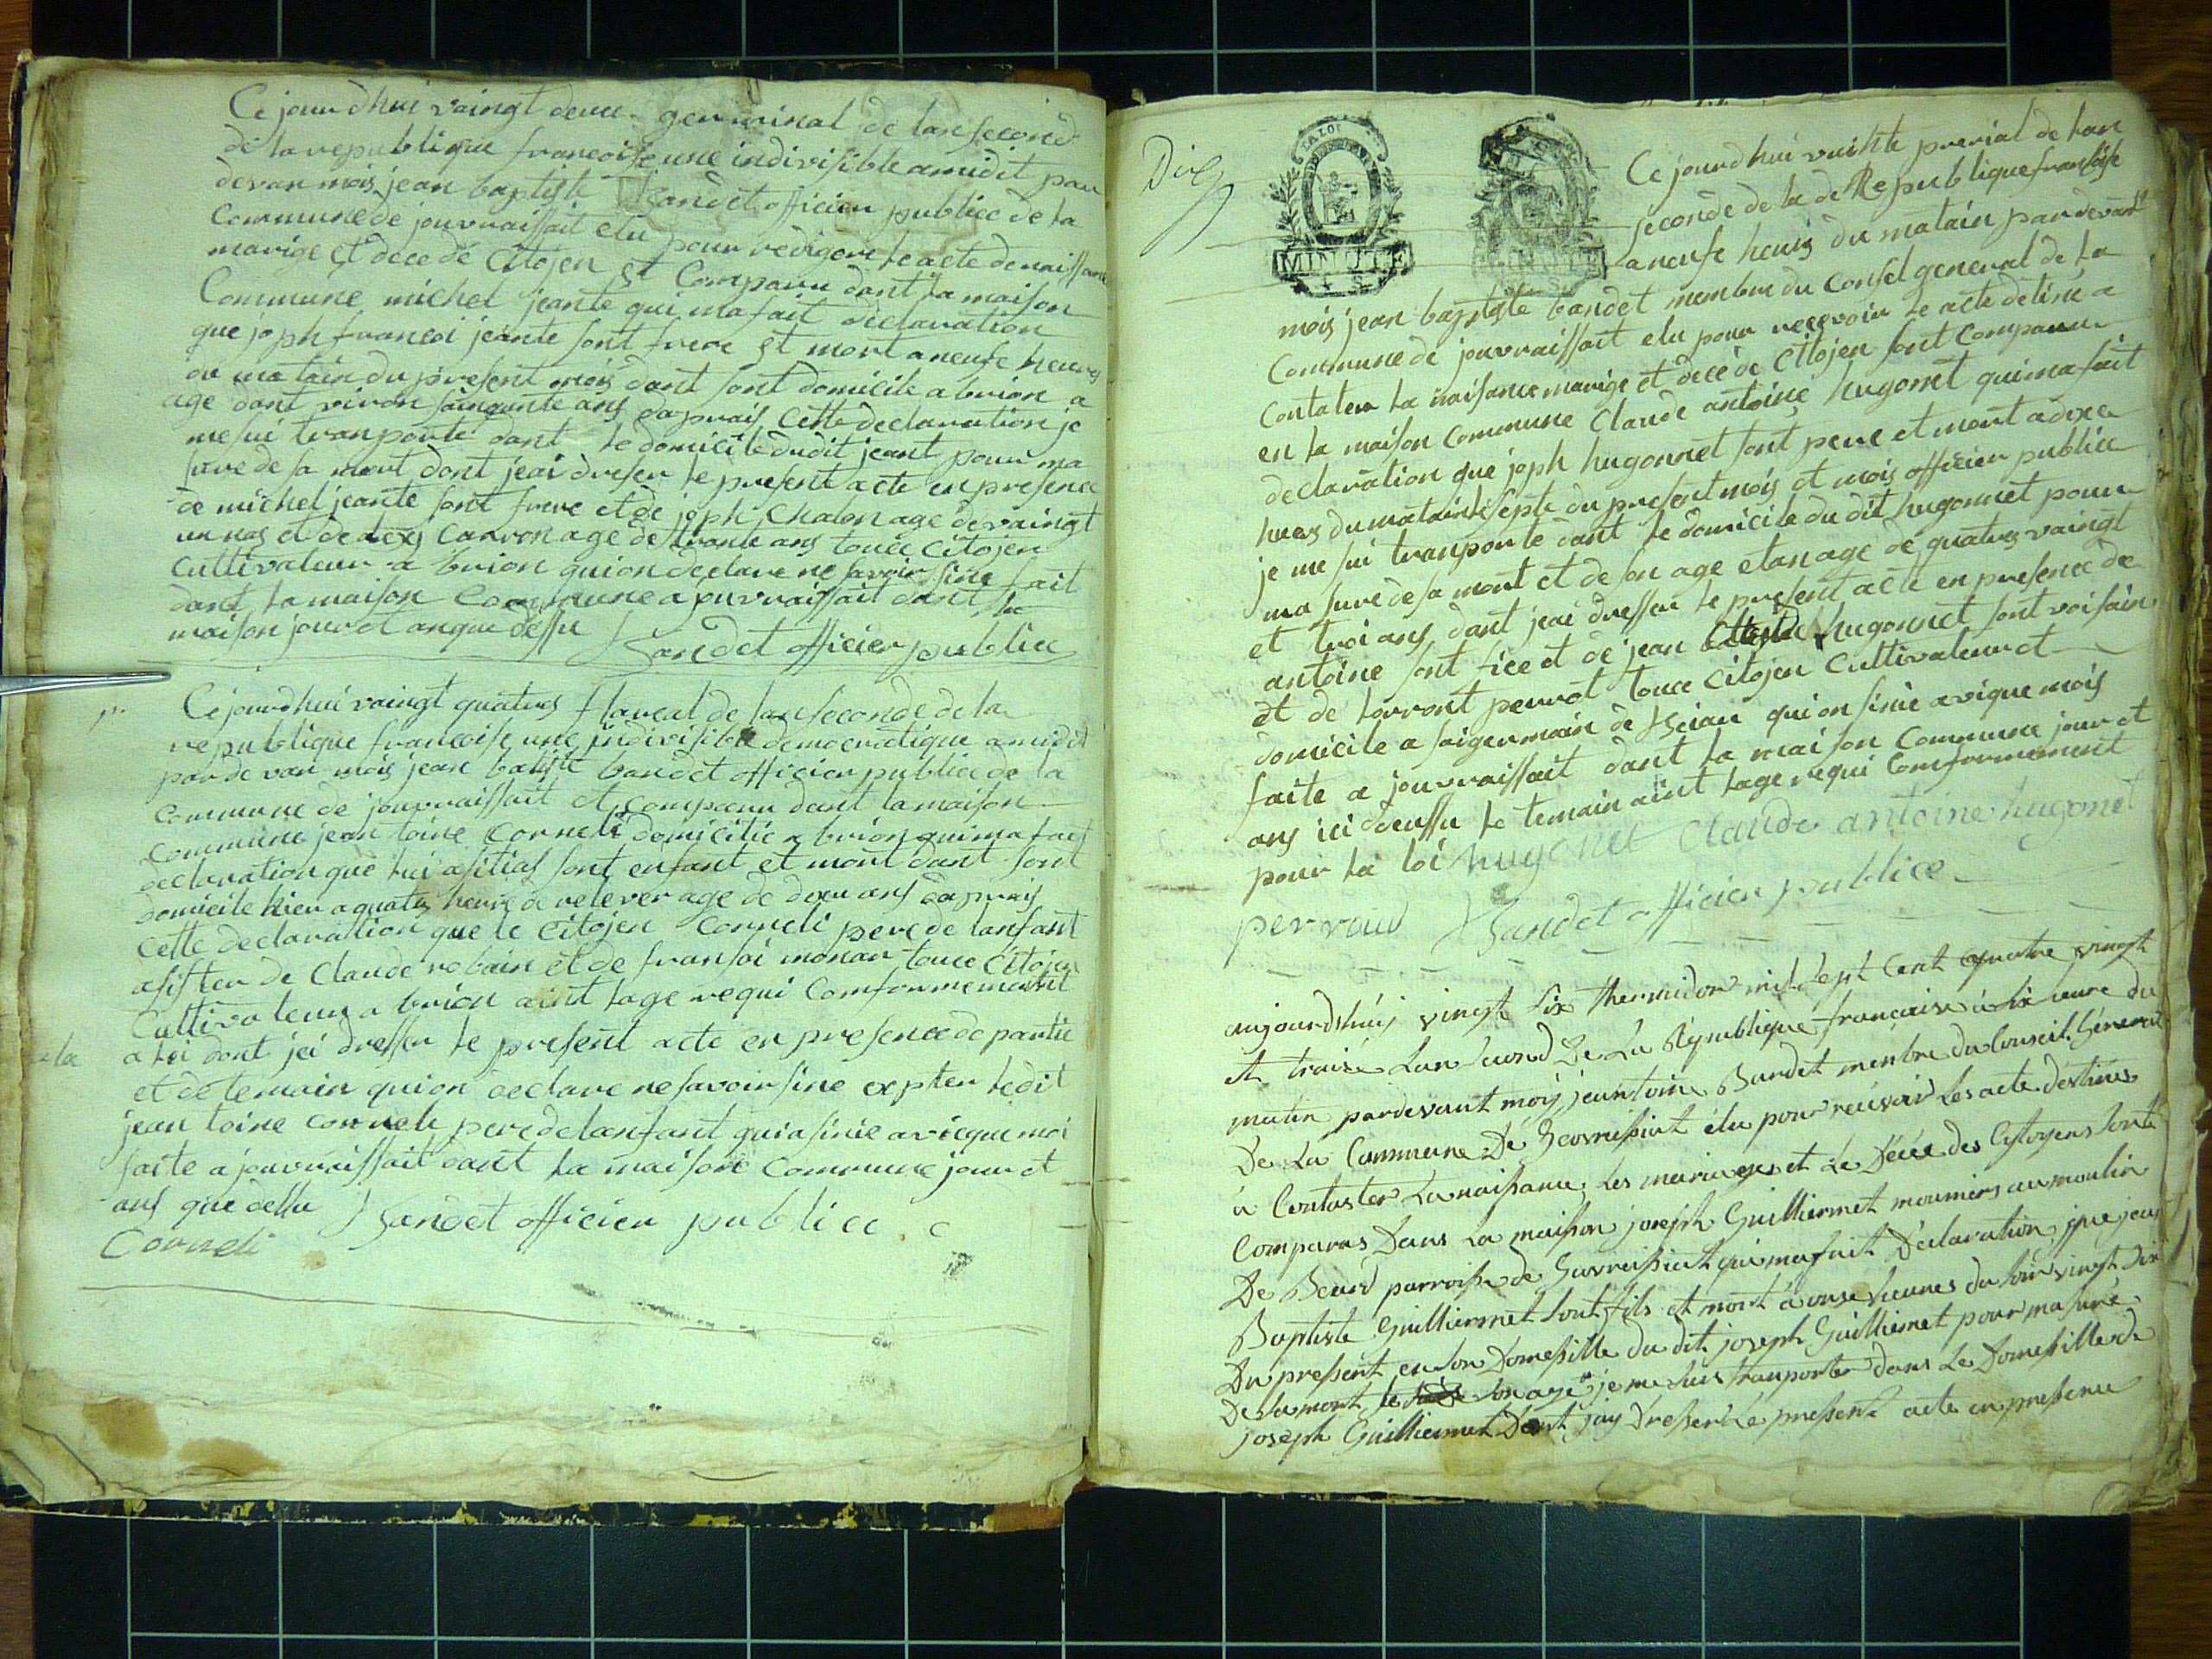 Ce jour dhui vaingt deuce germinal de lan second
de la republique francoise une indivisible a midit par
devan mois jean baptiste Bandet officier publice de la
Commune de jouvraissait elu pour redigere le acte de naissance
marige et decede Citojen et Comparu dant la maison
Commune michel jeante qui mafait declaration
que joph francoi jeante sont frere et mort a neufe heures
du matain du present mois dant sont domicile a brion a
age dant viron sainquante ans daprais Cette declaration je
me sui tranporte dant le domicile dudit jeant pour ma
sure de sa mort dont jeai dreser le present acte en presence
de michel jeante sont frere et de joph Chalon age de vaingt
un nas et de Carron age de trante ans touce Citojen
Cultivateur a brion quion declare ne savoir sine fait
dant la maison Commune a jouvraissait dant la
maison jour et anque dessu Bandet officier publice
Ce jourdhui vaingt quatres flareal de lan seconde de la
republique francoise une indivisible democratique a midit
par de van mois jean batiste bandet officier publice de la
Commune de jouvraissait et comparu dant la maison
commune jean toine Corneli domicilie a brion qui ma fait
declaration que lui asitias sont enfant et mort dant sont
domicile hier a quatres heure de relever age de deux ans daprais
Cette declaration que le Citojen Corneli pere de lanfant
asister de Claude robain et de fransoi monar touce Citojen
Cultivateur a brion aint lage requi Comformemant
a la
a loi dont jei dresser le present acte en presence de partie
et de temain quion declare ne savoir sine expter ledit
jean toine corneli pere de lanfant quia sinie avicque moi
faite a jouvraissait dant la maison Commune jour et
ans que dessu Bandet officier publice
Corneli
Dix
LA LOI
MINUTE
Ce jourdhui vainte prerial de lan
seconde de la de Republique fransise
a neufe heuis du matain par devant
mois jean baptiste bandet membre du Consel general de la
Commune de jouvraissait elu pour recevoir le acte detine a
Contater la naisance marige et dece de Citojen sont Comparu
en la maison Commune Claude antoine hugonnet qui ma fait
declaration que joph hugonnet sont pere et mort a dixe
hures du matain le septe du present mois et mois officier publice
je me sui tranporte dant le domicile du dit hugonnet pour
ma sure de sa mort et de son age etan age de quatres vaingt
et troi ans dant jeai dresser le present acte en presence de
antoine sont fice et de jean hugonnet sont voisain
et de lorront perrot touce Citojen Cultivateur et
domicile a saigermain de qui on sinie avique mois
faite a jouvraissait dant la maison Commune jour et
ans ici deussu le temain aint lage requi Comformement
pour la loi hugonet Claude antoine hugonet
perroud Bandet officier publice
aujourdshuij vingt six thermidor mil sept Cent quatre vingt
et traise Lan second De La République francaise à six eure du
matin pardevant moij jeantoine Bandet menbre du Conseil Géneral
De La Commune De Geovreissiat élu pour recevoir Les acte destines
à Contaster La naissance, Les mariages et Le Décée des Cytoyens sont
Comparus Dans La maison joseph Guilliermet mouniers au moulin
De Beard parroisse de Guvreissiat qui mafait Déclaration que jean
Baptiste Guilliermet sont fils et mort à onse heures du soir vingt six
Du pressent en son Domesille du dit joseph Guilliermet pour masuré
De sa mort son age je me suis tranporter dans Le Domesille de
joseph Guilliermet Dont jay Dresser Le pressent acte en pressence